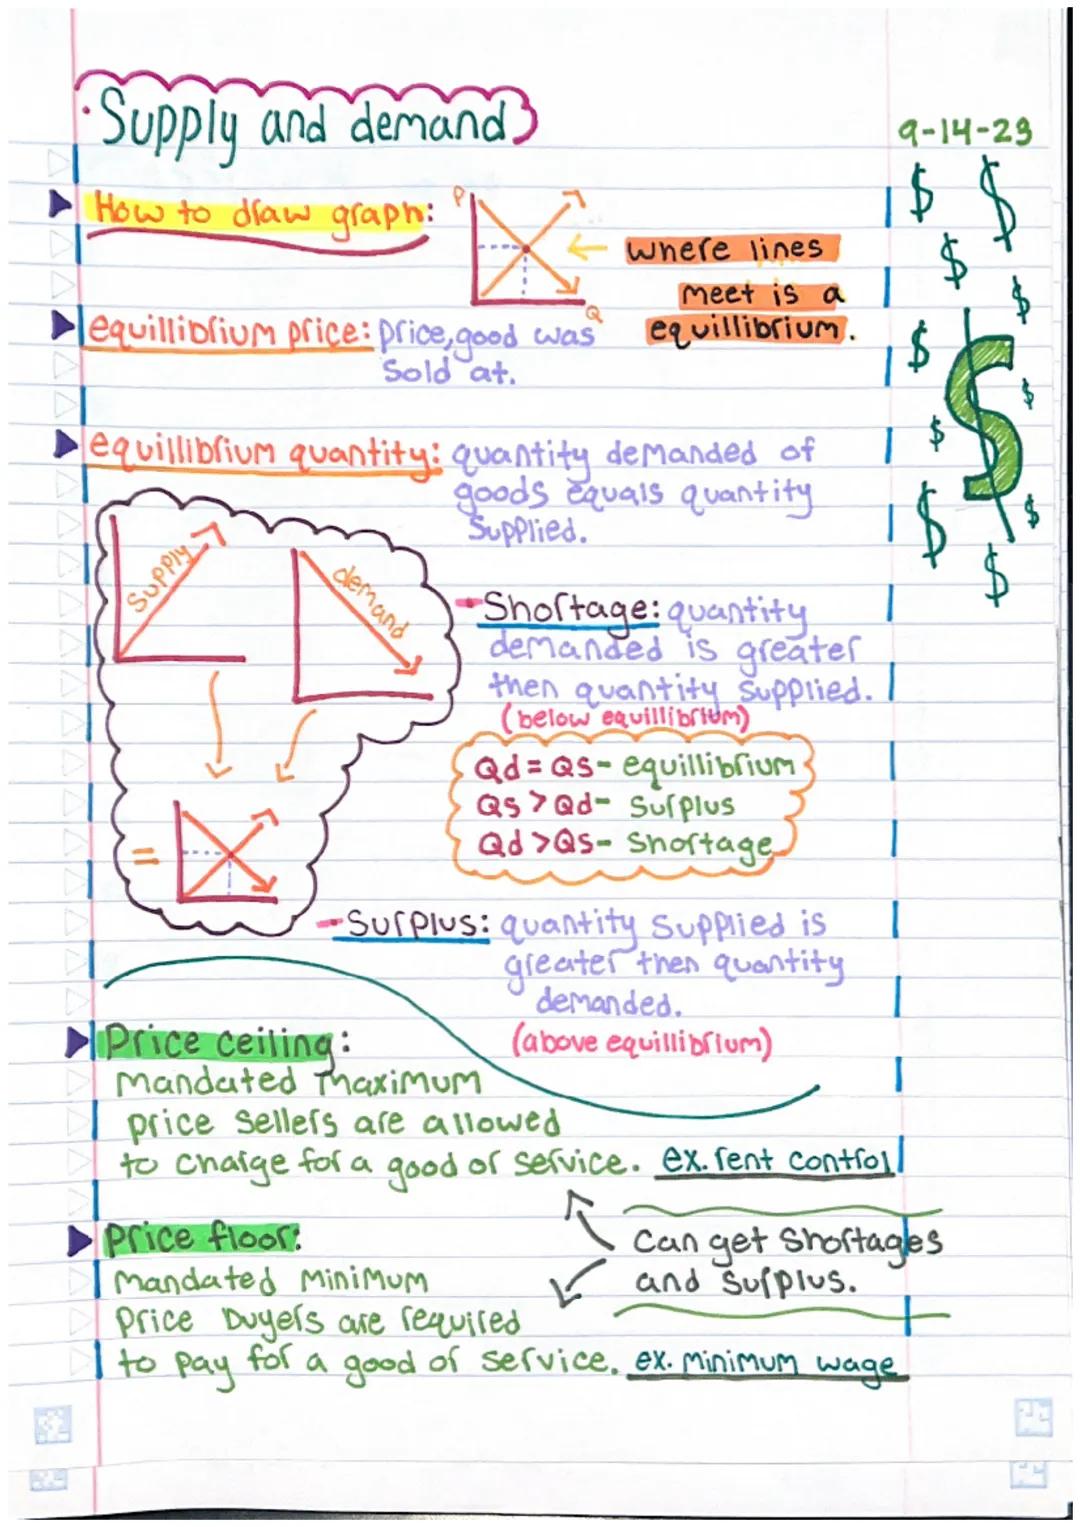 Supply and demand
9-14-23
How to draw graph:
P
Q
where lines
meet is a
equillibrium.
equillibrium price: price, good was
sold at.
equillibrium quantity: quantity demanded of
goods equals quantity
supplied.
supply
demand
=
- Shortage: quantity
demanded is greater
then quantity supplied.
(below equillibrium)
Qd = Qs - equillibrium
Qs > Qd - surplus
Qd > Qs - shortage
- Surplus: quantity supplied is
greater then quantity
demanded.
(above equillibrium)
Price ceiling:
mandated maximum
price sellers are allowed
to charge for a good or service. ex. rent control
Price floor:
Can get shortages
and surplus.
mandated minimum
price buyers are required
to pay for a good or service. ex. minimum wage
$ $
$
$
$
$
$
$
$
$
$